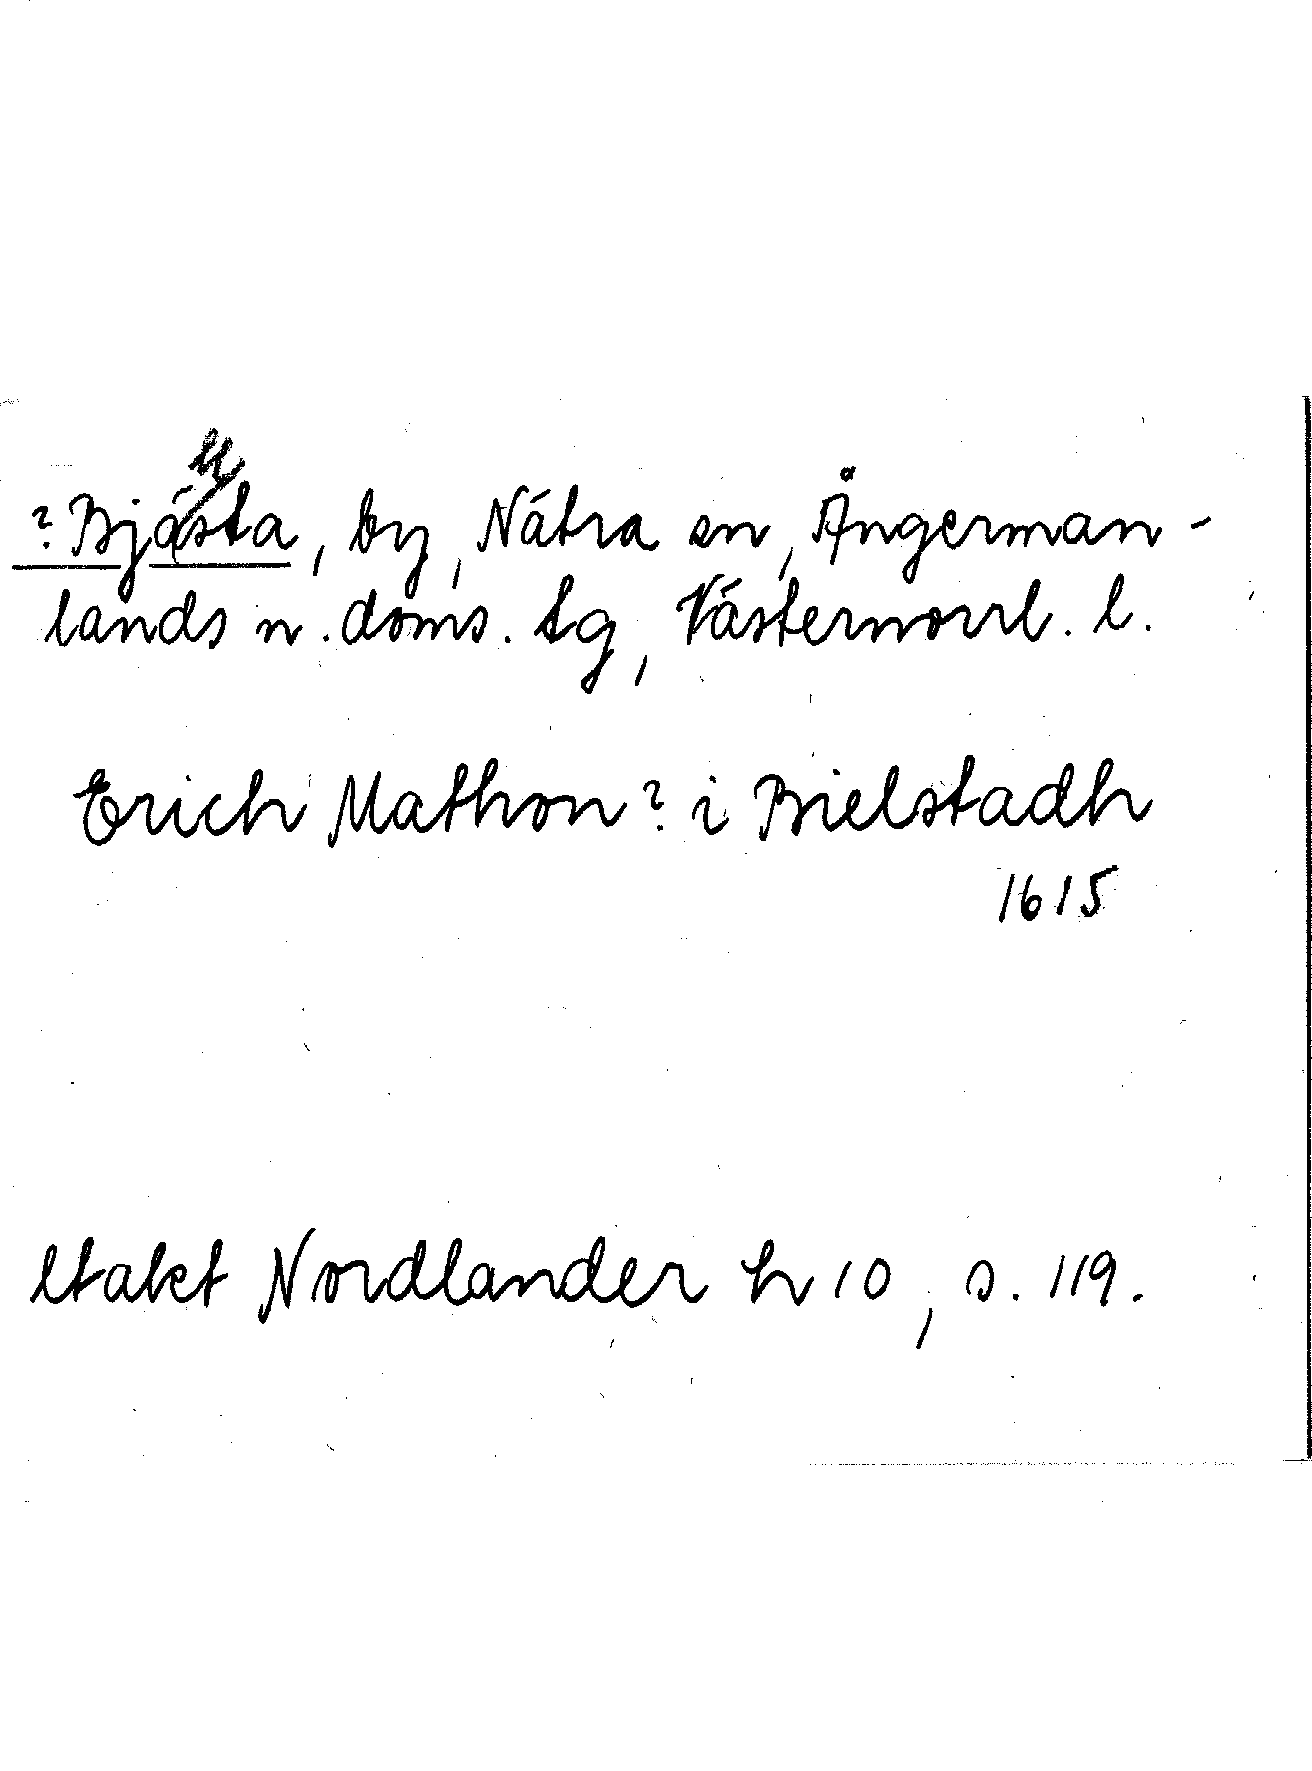 ? Bjästa, by, Nätra sn, Ångerman-
lands n. doms. tg, Västernorrl. l.
Erich Mathon? i Bielstadh
1615
Utakt Nordlander h 10, s. 119.